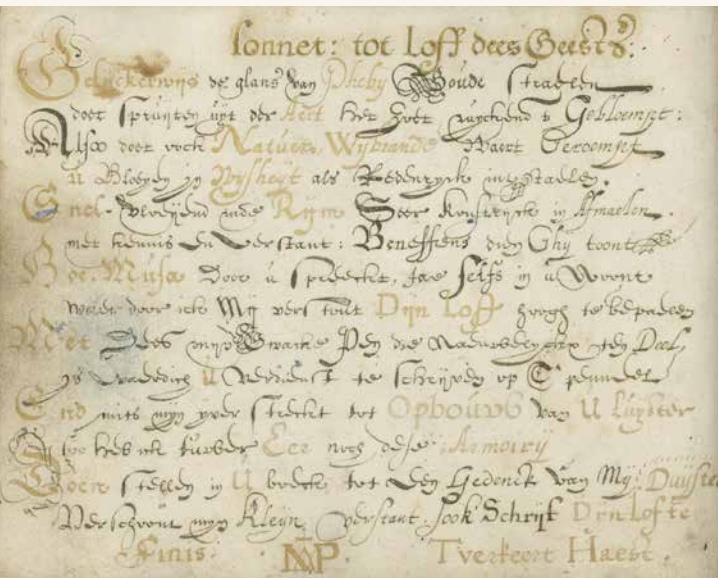 Sonnet: tot Loff deez Geests.
Gelijckerwijs de glans van Pheby Goude straelen
doet spruijten uijt der Aert het soet ruyckend Gebloempt:
Alsoo doet oock Natuer, Wybrande Waert Geroempt
U Bloeyen in Wysheyt als Redenryck
Snel-vloeijend inde Rijm Seer Konstryck in Afmaelen.
met kennis en verstant: Beneffens dien Ghy toont
Hoe Musa door u spreeckt, Jae selfs in u Woont
waer door ick Mij verstout Dijn Loff hoogh te bepaelen
Met Dees mijn Swacke Pen die
is waerdich U verdienst te schrijven op
End mits myn yver streckt tot Opbouwb van U Luyster
Soo heb ick tuwder Eer noch dese Armoirij
Doen stellen in U boeck tot Een Gedenck van Mij: Duyster
Verschoont myn Kleyn verstant Schrijf Dijn Lof
Finis. Tverkeert Haest.